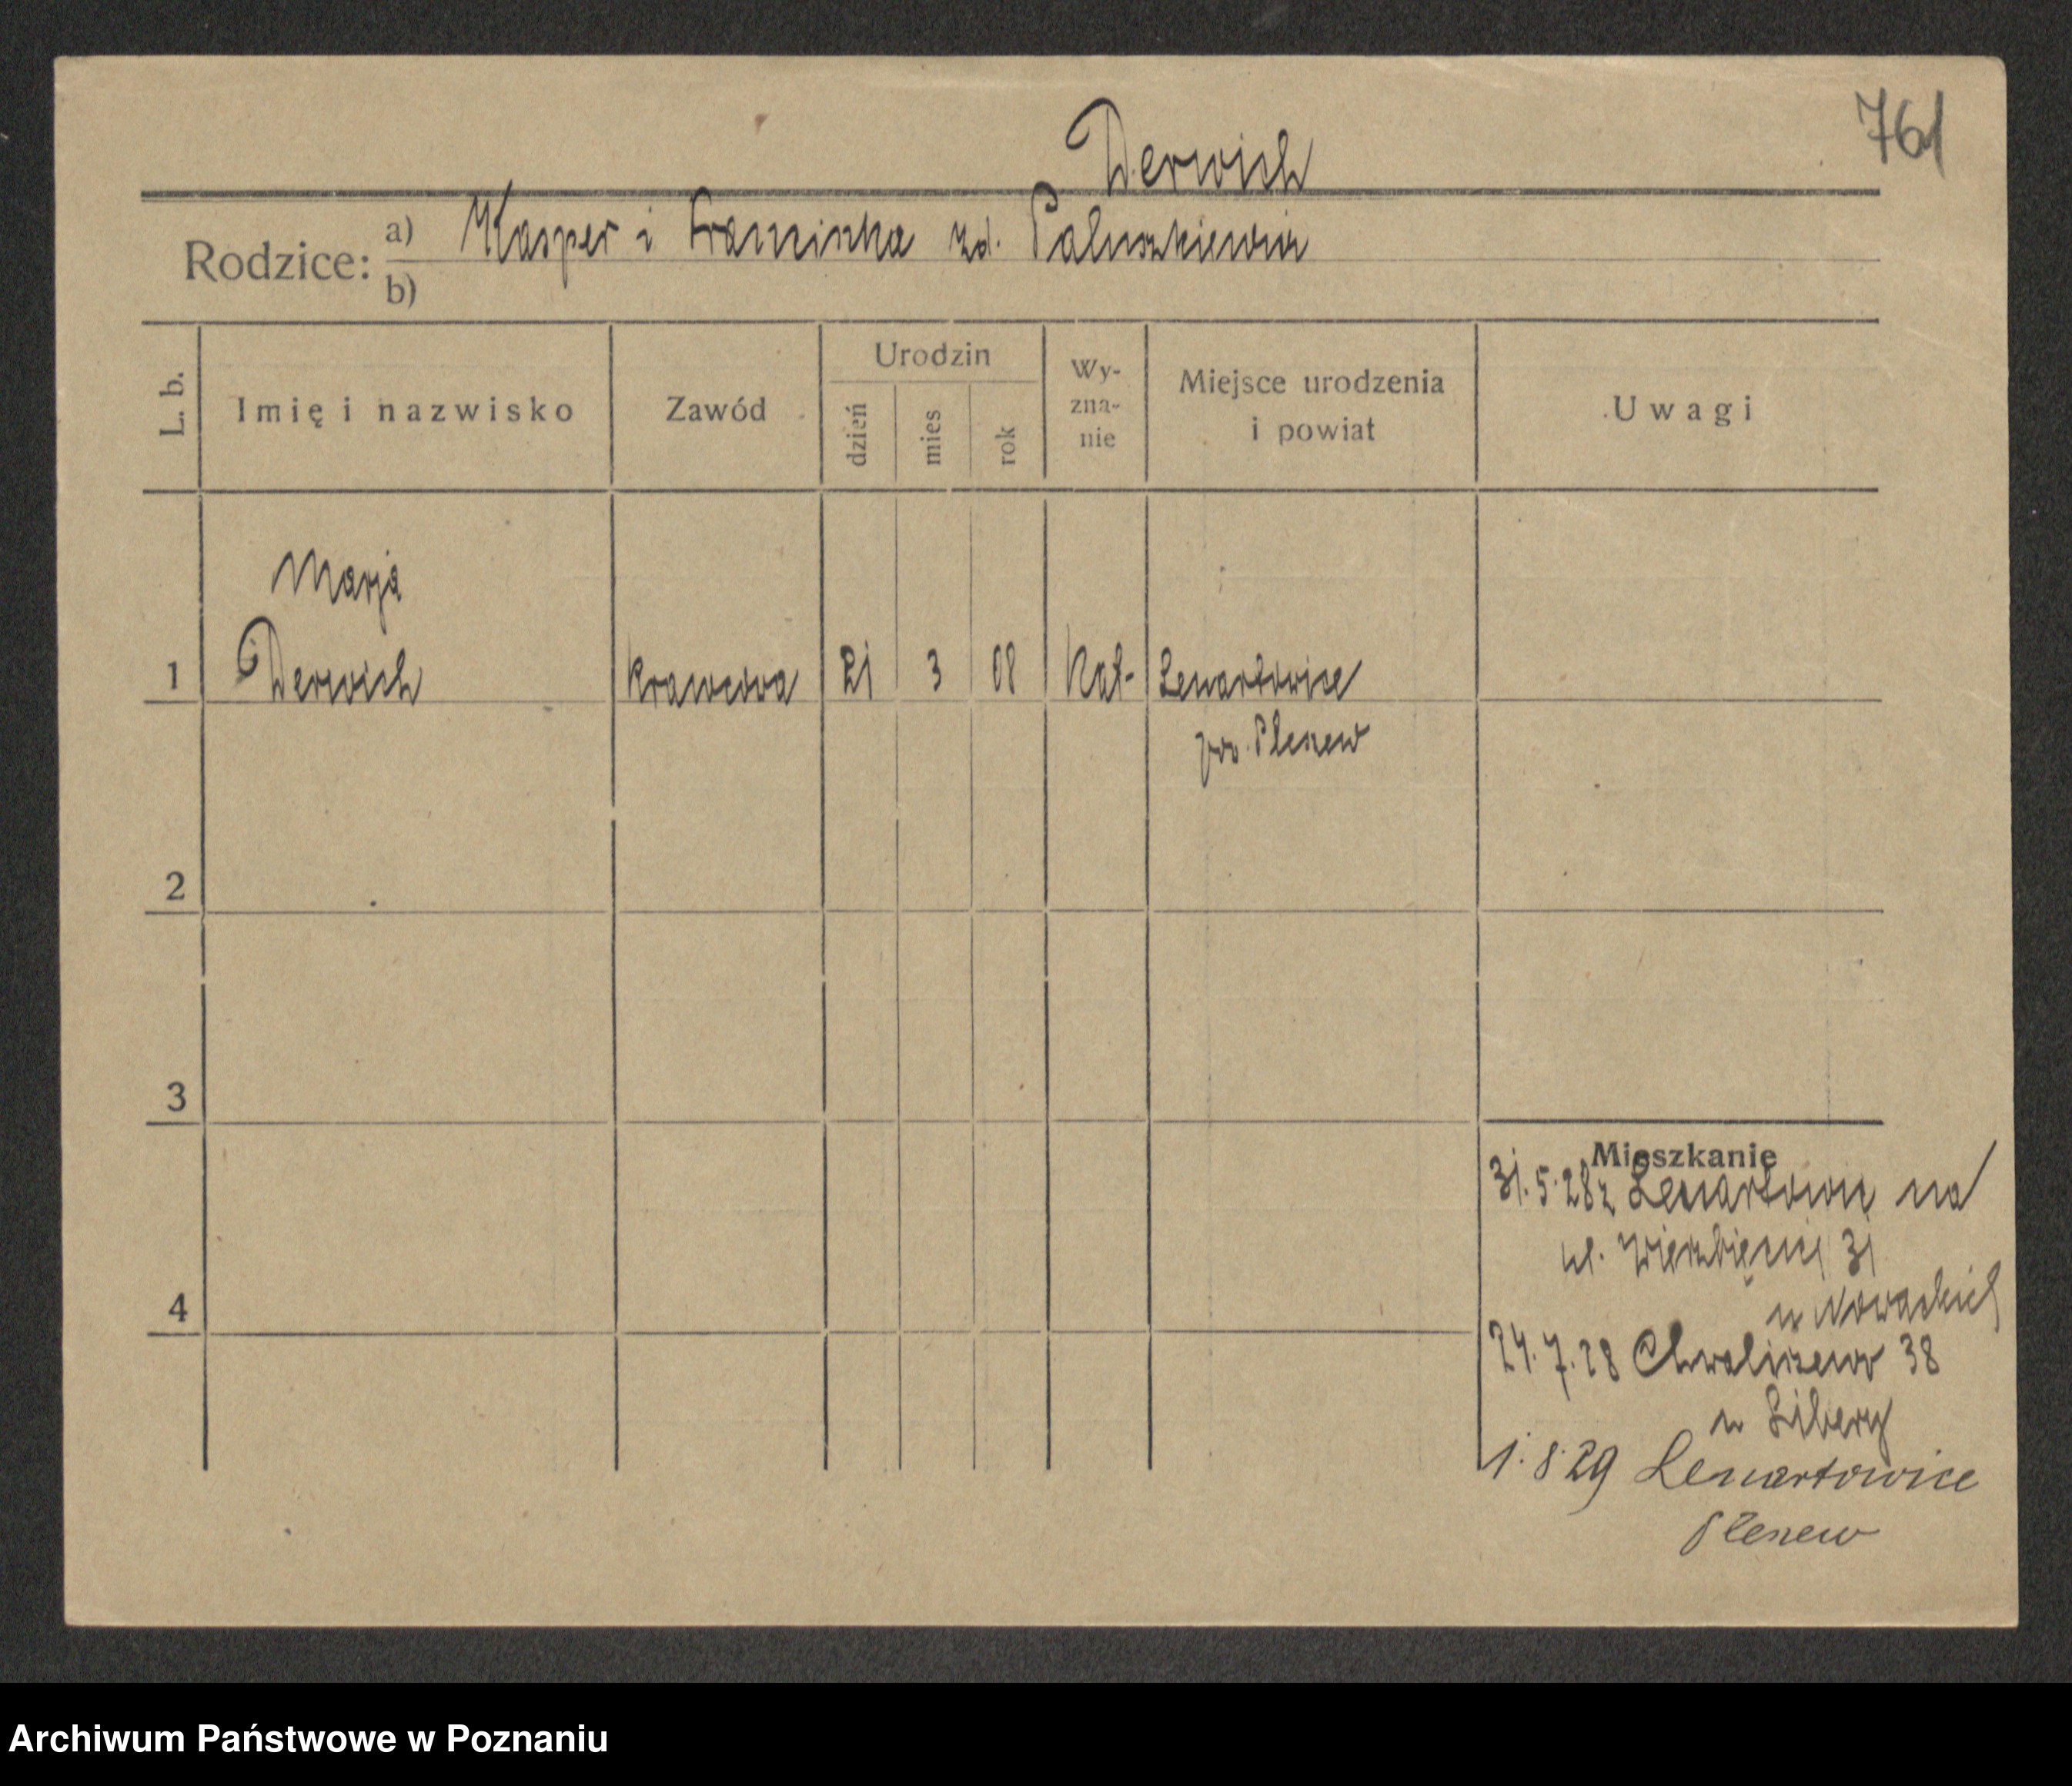 761
Derwich
Rodzice: a) Kasper i Franciszka zd. Paluszkiewicz
b)
L. b.
Imię i nazwisko
Zawód
Urodzin
dzień
mies
rok
Wy-
zna-
nie
Miejsce urodzenia
i powiat
Uwagi
Marja
1 Derwich krawcowa 21 3 08 Kat. Lenartowice
pow Pleszew
2
3
Mieszkanie
31.5.28 z Lenartowic na
ul. Wierzbięcice 31
u Nowackich
4
24.7.28 Chwaliszewo 38
u
1.8.29 Lenartowice
Pleszew
Archiwum Państwowe w Poznaniu